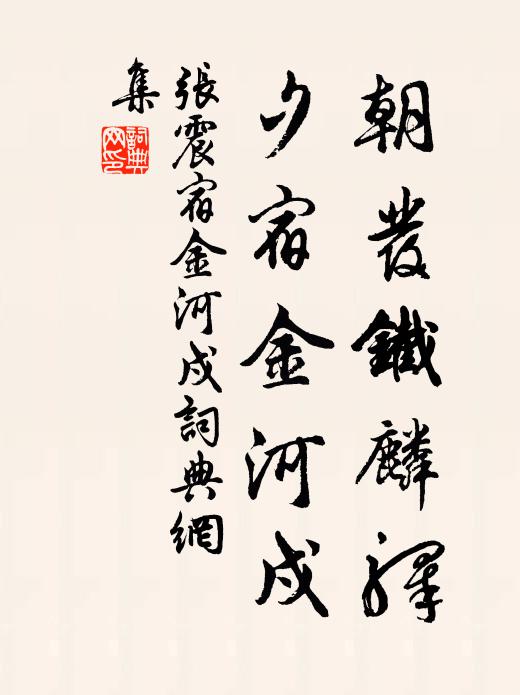 朝發鐵麟驛
夕宿金河戍
張震宿金河戍詞典網
集
詞典
网印